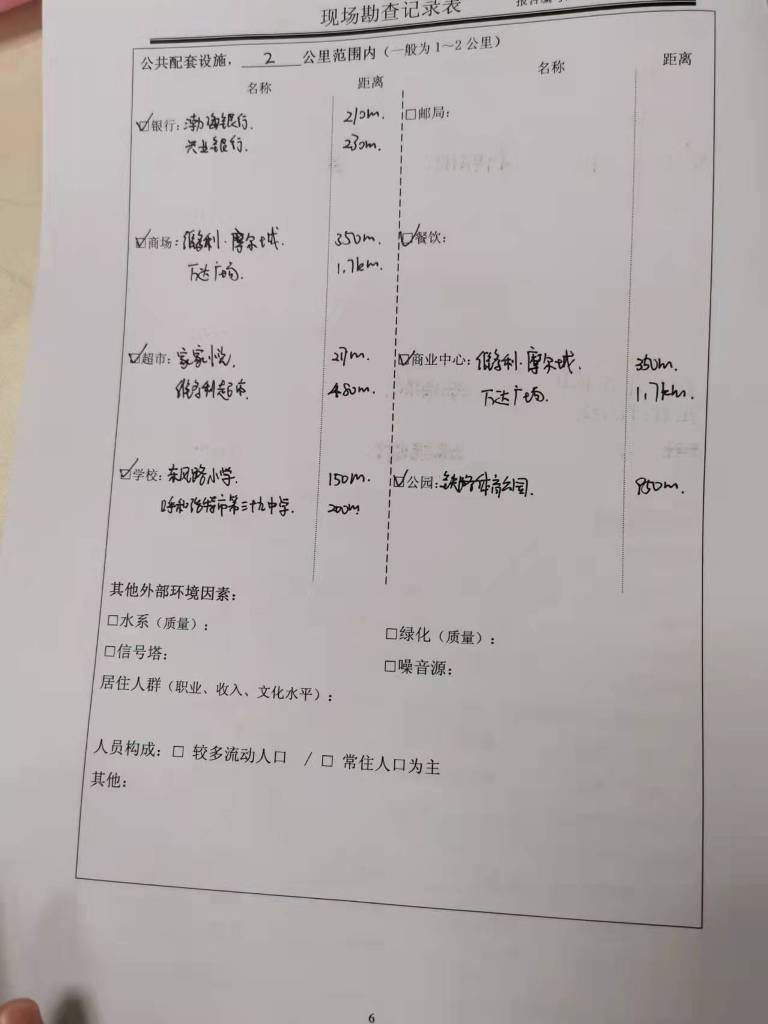 现场勘查记录表
公共配套设施，2公里范围内（一般为1～2公里）
名称 距离 名称 距离
☑银行：渤海银行. 210m. □邮局：
兴业银行. 230m.
☑商场：维多利·摩尔城. 350m. ☑餐饮：
万达广场. 1.7km.
☑超市：家家悦. 217m. ☑商业中心：维多利·摩尔城. 350m.
维多利超市 480m. 万达广场. 1.7km.
☑学校：东风路小学. 150m. ☑公园：铁路体育公园. 950m.
呼和浩特市第三十九中学. 200m
其他外部环境因素：
□水系（质量）： □绿化（质量）：
□信号塔： □噪音源：
居住人群（职业、收入、文化水平）：
人员构成：□ 较多流动人口 / □ 常住人口为主
其他：
6